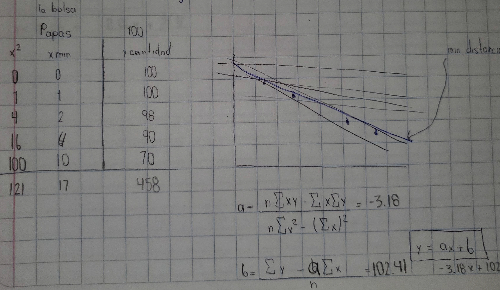 la bolsa
Papas 100
x² x min y cantidad
0 0 100
1 1 100
4 2 98
16 4 90
100 10 70
121 17 458
min distancia
a = n Σxy - ΣxΣy / nΣx² - (Σx)² = -3.18
b = Σy - aΣx / n = 102.41
y = ax + b
-3.18x + 102